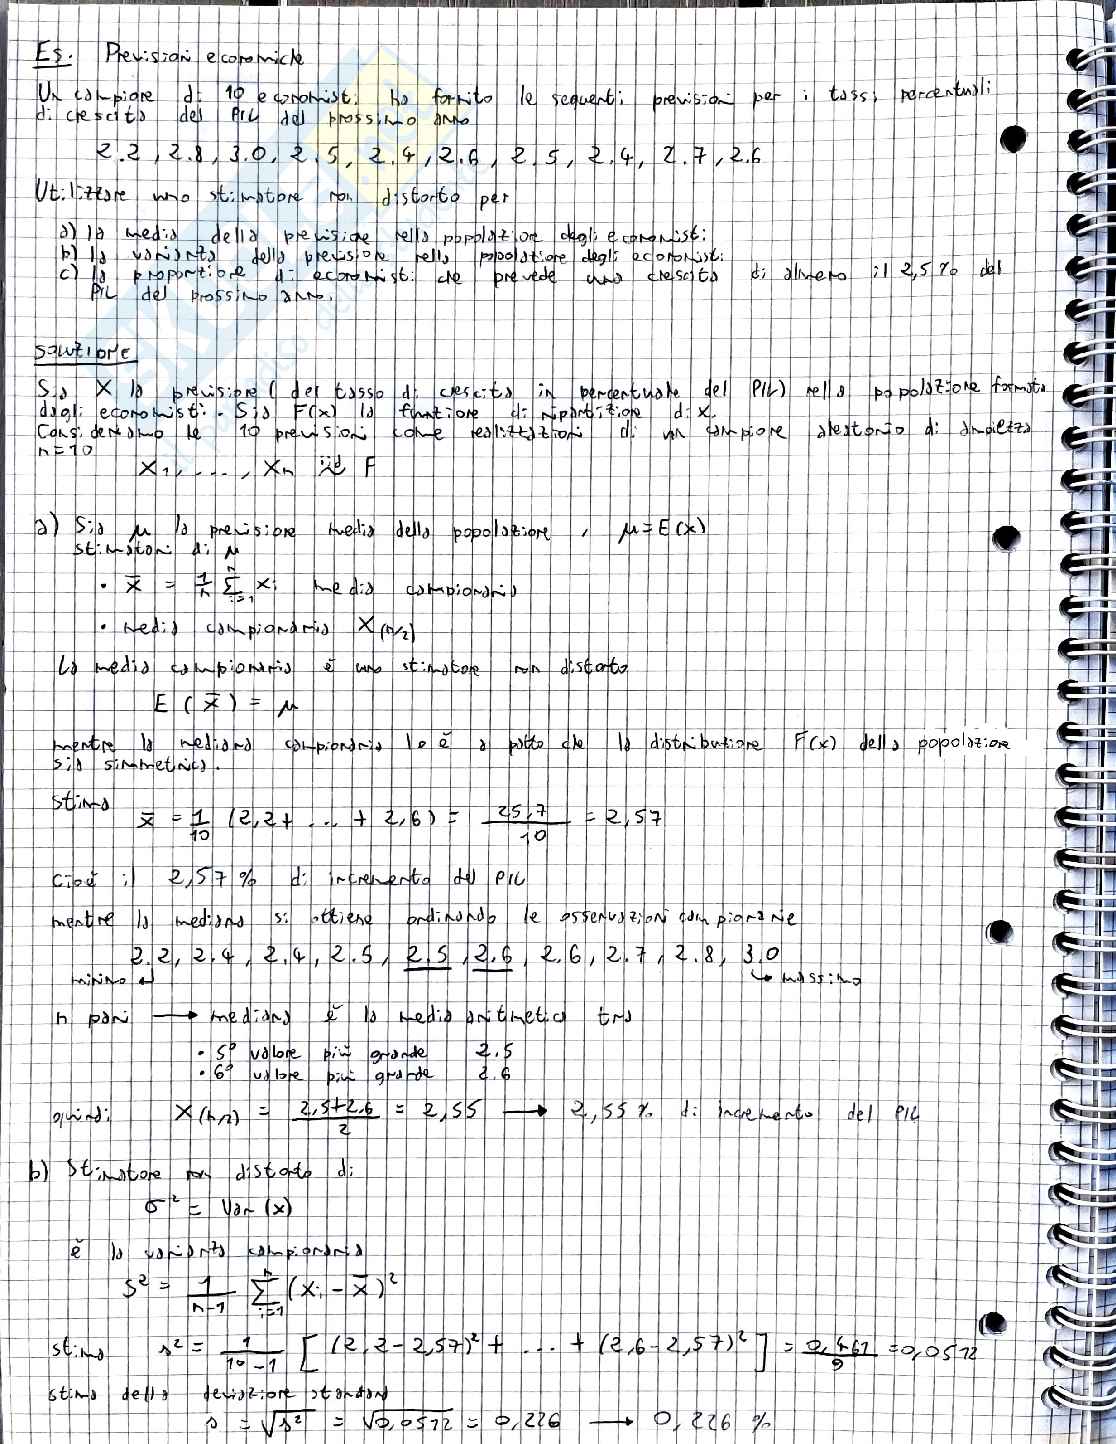 Es. Previsioni economiche
Un campione di 10 economisti ha fornito le seguenti previsioni per i tassi percentuali
di crescita del PIL del prossimo anno
2.2, 2.8, 3.0, 2.5, 2.4, 2.6, 2.5, 2.4, 2.7, 2.6
Utilizzare uno stimatore non distorto per
a) la media della previsione nella popolazione degli economisti
b) la varianza della previsione nella popolazione degli economisti
c) la proporzione di economisti che prevede una crescita di almeno il 2,5% del
PIL del prossimo anno.
soluzione
Sia X la previsione (del tasso di crescita in percentuale del PIL) nella popolazione formata
dagli economisti. Sia F(x) la funzione di ripartizione di X.
Consideriamo le 10 previsioni come realizzazioni di un campione aleatorio di ampiezza
n=10
X1, ..., Xn iid F
a) Sia μ la previsione media della popolazione, μ=E(X)
stimatori di μ
• x̄ = 1/n Σ(i=1..n) Xi media campionaria
• media campionaria X(n/2)
La media campionaria è uno stimatore non distorto
E(x̄) = μ
mentre la mediana campionaria lo è a patto che la distribuzione F(x) della popolazione
sia simmetrica.
stima x̄ = 1/10 (2,2+ ... + 2,6) = 25,7/10 = 2,57
cioè il 2,57% di incremento del PIL
mentre la mediana si ottiene ordinando le osservazioni campionarie
2.2, 2.4, 2.4, 2.5, 2.5, 2.6, 2.6, 2.7, 2.8, 3.0
minimo ↵ ↳ massimo
n pari → mediana è la media aritmetica tra
• 5° valore più grande 2.5
• 6° valore più grande 2.6
quindi X(n/2) = 2,5+2.6/2 = 2,55 → 2,55% di incremento del PIL
b) Stimatore non distorto di
σ² = Var(x)
è la varianza campionaria
S² = 1/n-1 Σ(i=1..n) (Xi - x̄)²
stima s² = 1/10-1 [(2,2-2,57)²+ ... + (2,6-2,57)²] = 0,461/9 = 0,0512
stima della deviazione standard
s = √s² = √0,0512 = 0,226 → 0,226 %